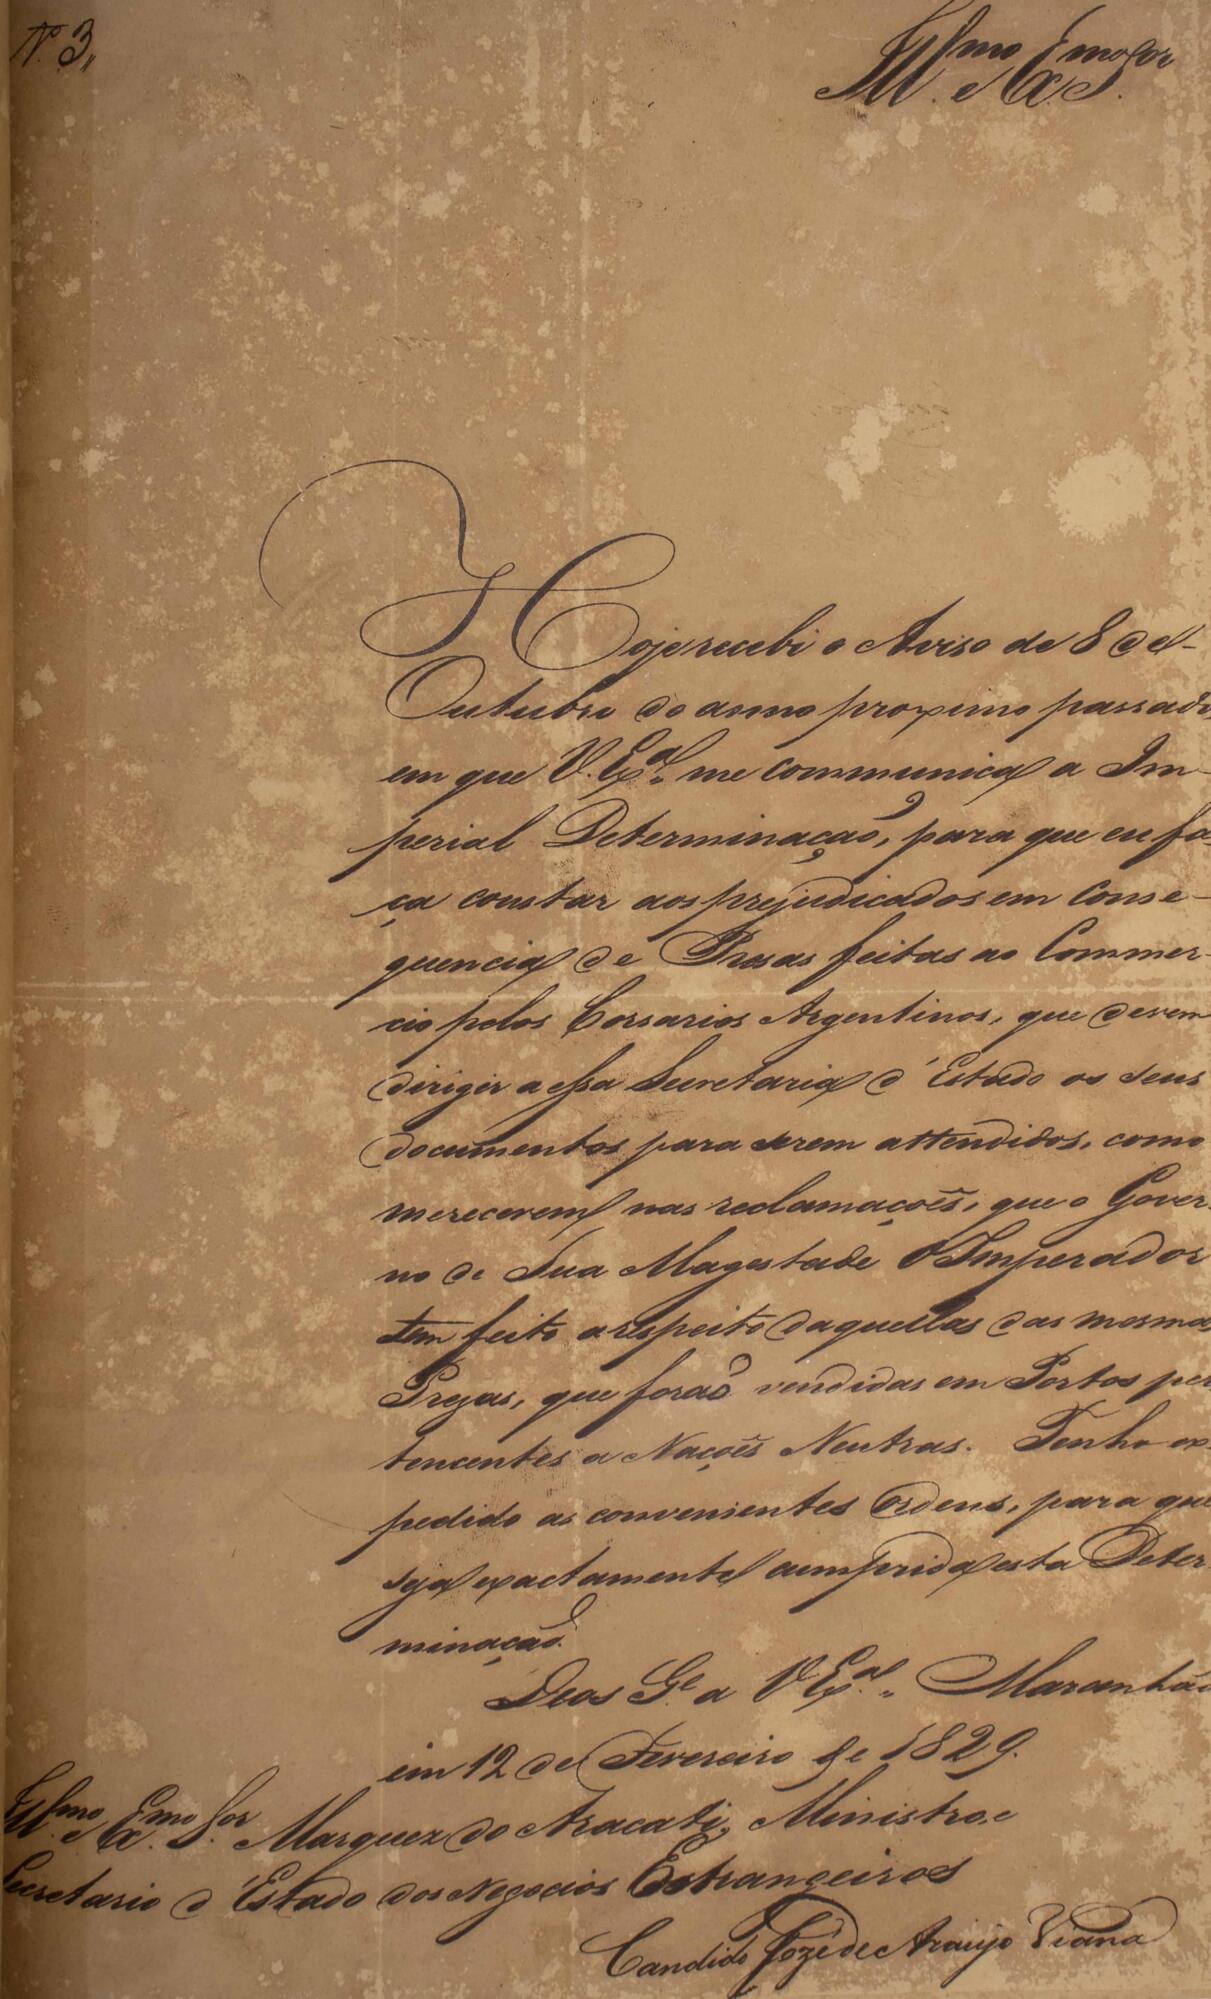 N.º 3,,
Ill.mo e Ex.mo S.or
Hoje recebi o Aviso de 8 de
Outubro do anno proximo passado,
em que V. Ex.cia me communica a Im-
perial Determinação, para que eu fa-
ça constar aos prejudicados em conse-
quencia de Presas feitas ao Commer-
cio pelos Corsarios Argentinos, que devem
dirigir a essa Secretaria d'Estado os seus
documentos para serem attendidos, como
merecerem nas reclamaçoẽs, que o Gover-
no de Sua Magestade O Imperador
tem feito a respeito daquellas das mesmas
Prezas, que foraõ vendidas em Portos per
tencentes a Naçoẽs Neutras. Tenho ex-
pedido as convenientes Ordens, para que
seja exactamente cumprida esta Deter-
minação.
Deos G.e a V. Ex.cia Maranhão
em 12 de Fevereiro de 1829.
Ill.mo e Ex.mo S.or Marquez do Aracati, Ministro e
Secretario d'Estado dos Negocios Estrangeiros
Candido Jozé de Araujo Viana